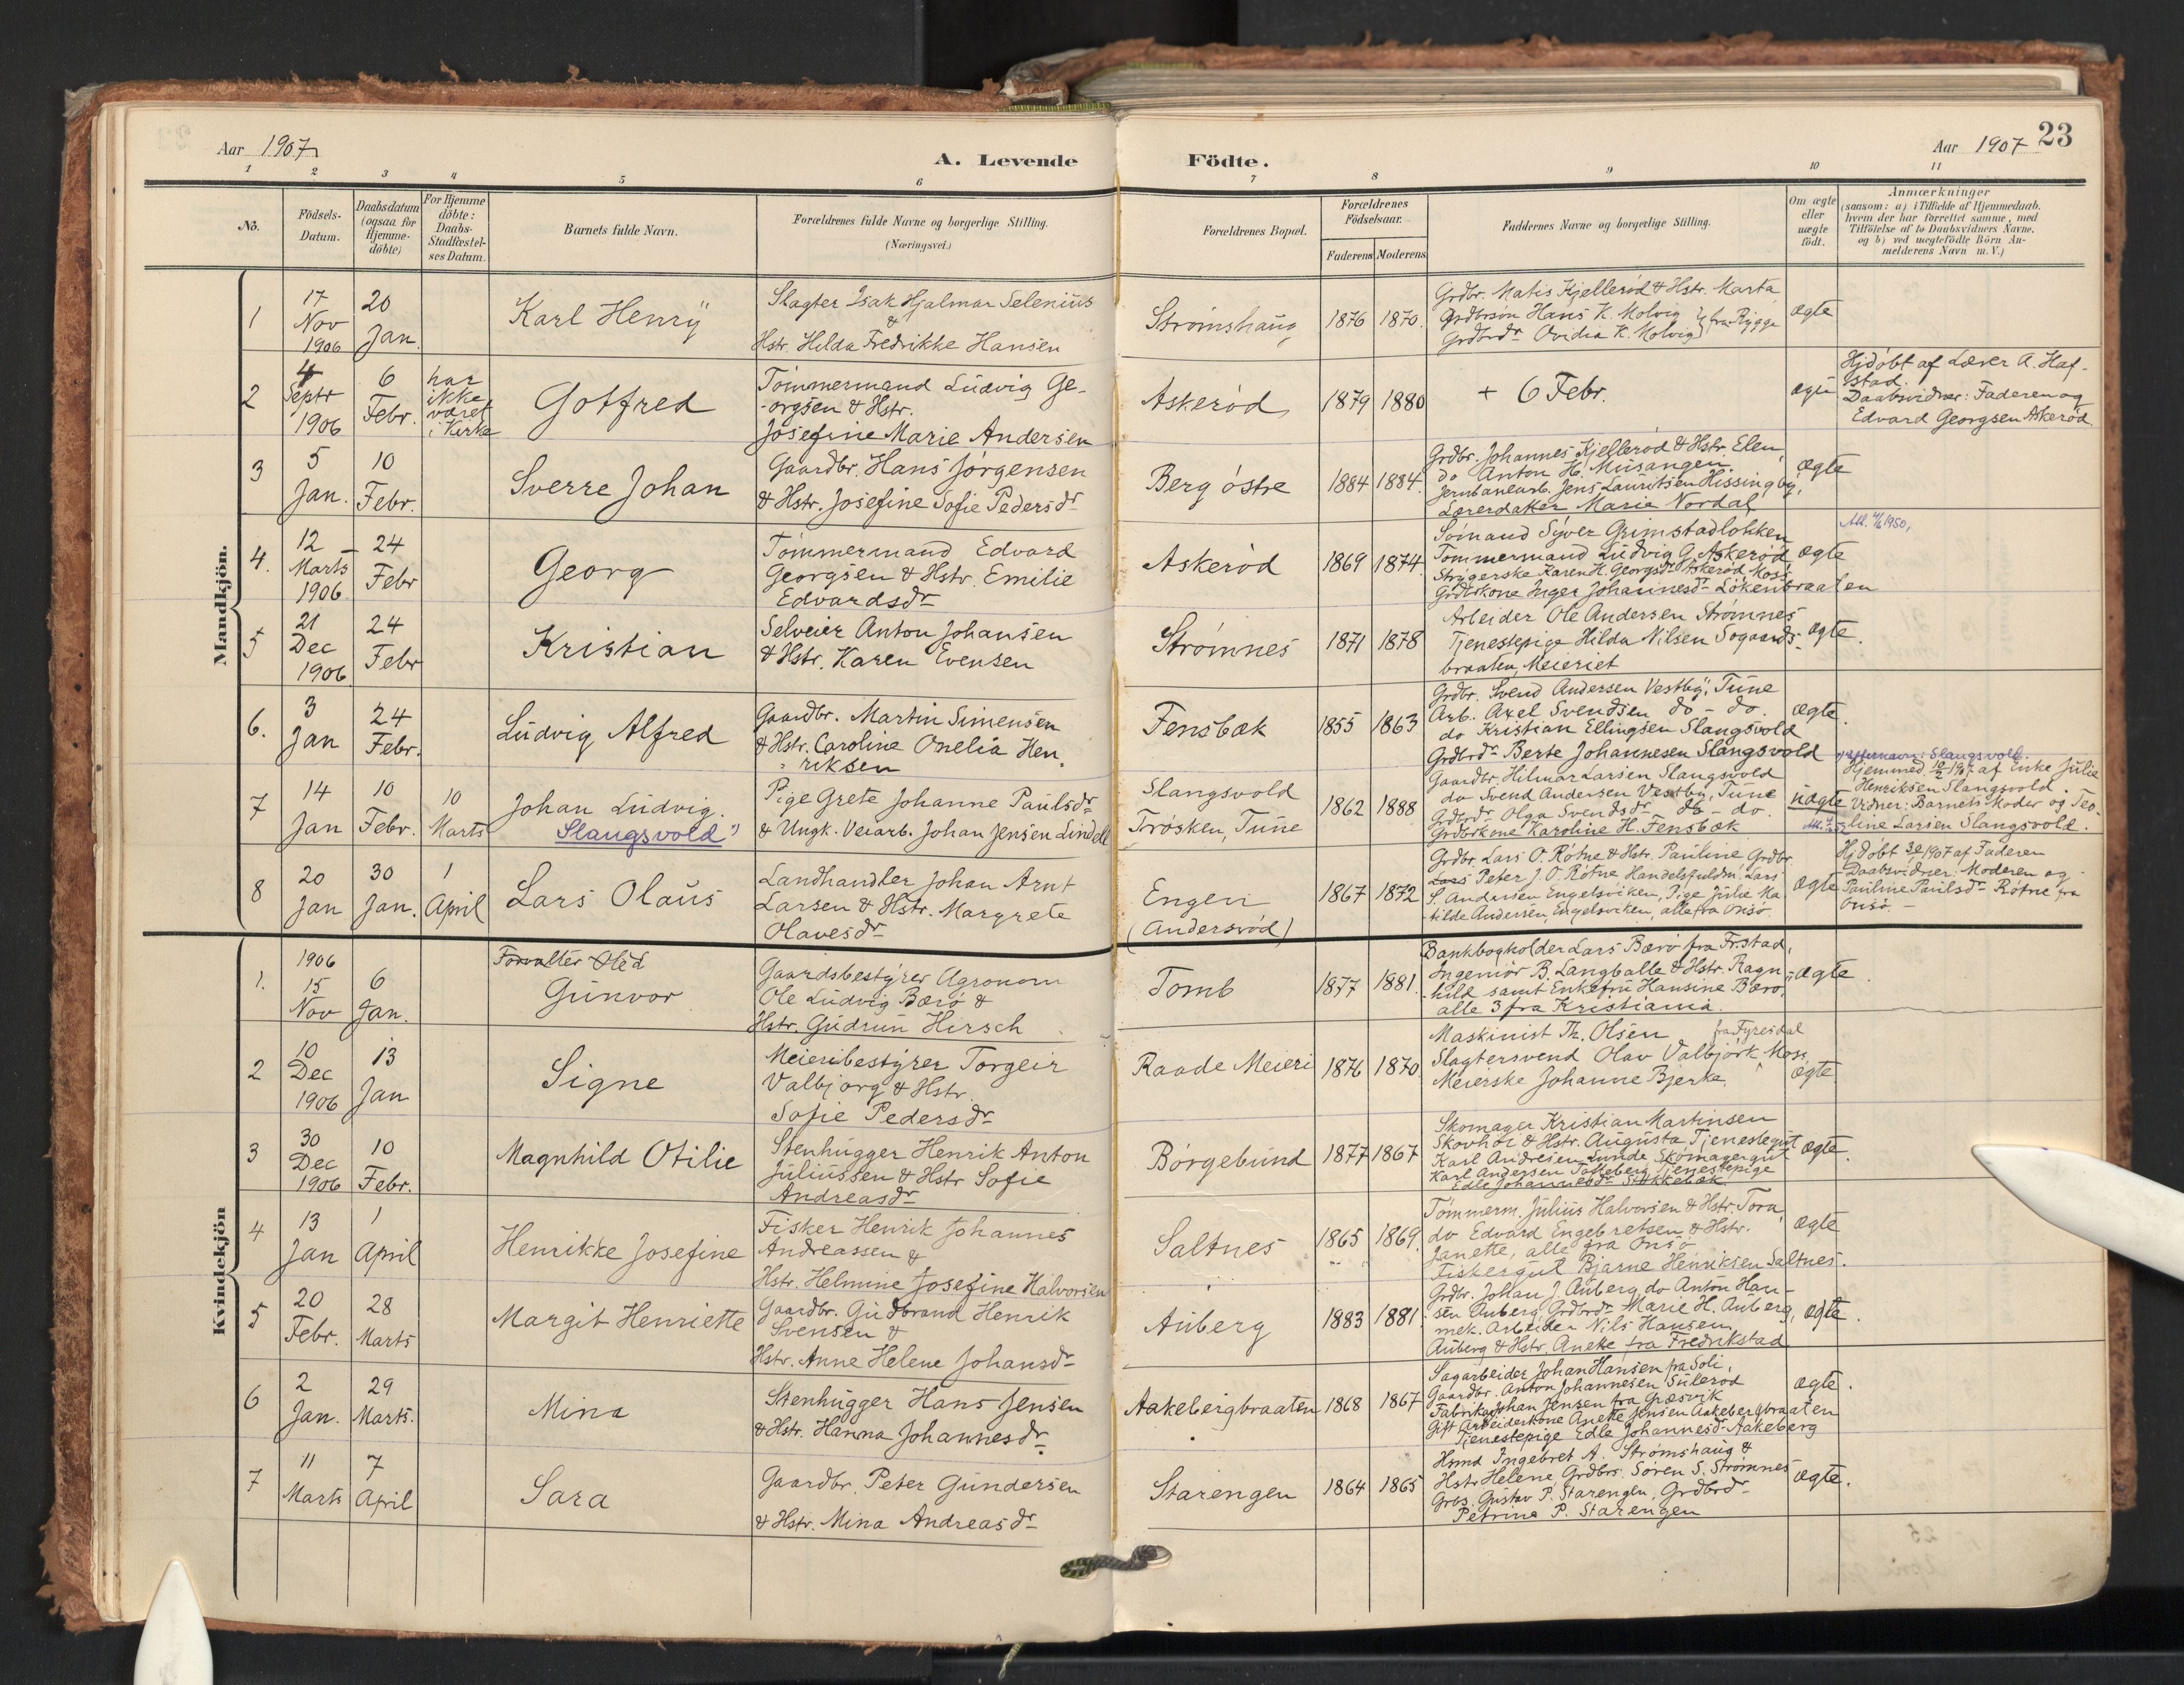 Aar 1907
A. Levende
Födte.
Aar 1907
23
1 2 3 4 5 6 7 8 9 10 11
No.
Födsels-
Datum.
Daabsdatum
(ogsaa for
Hjemme-
döbte)
For Hjemme
döbte:
Daabs-
Stadfæstel-
ses Datum.
Barnets fulde Navn.
Forældrenes fulde Navne og borgerlige Stilling.
(Næringsvei.)
Forældrenes Bopæl.
Forældrenes
Födselsaar.
Faderens
Moderens
Faddernes Navne og borgerlige Stilling.
Om ægte
eller
uægte
födt.
Anmærkninger
(saasom: a) i Tilfælde af Hjemmedaab.
hvem der har forrettet samme, med
Tilföielse af to Daabsvidners Navne.
og b) ved uægtefödte Börn An-
melderens Navn m. V.)
Mandkjön.
1
17
Nov
1906
20
Jan.
Karl Henry
Slagter Isak Hjalmar Selenius
&
Hstr. Hilda Fredrikke Hansen
Strømshaug
1876
1870.
Grdbr. Matis Kjellerød & Hstr. Marta
Grdbrsøn Hans K. Molvig } fra Rygge
Grdbrdr Ovidia K. Molvig
ægte
2
4
Septr
1906
6
Febr.
har
ikke
været
i Kirke
Gotfred
Tømmermand Ludvig Ge-
-orgsen & Hstr.
Josefine Marie Andersen
Askerød
1879
1880
+ 6 Febr.
ægte
Hjdøbt af Lærer A. Haf-
stad.
Daabsvidner: Faderen og
Edvard Georgsen Askerød.
3
5
Jan.
10
Febr.
Sverre Johan
Gaardbr. Hans Jørgensen
& Hstr. Josefine Sofie Pedersdr
Berg østre
1884
1884.
Grdbr. Johannes Kjellerød & Hstr. Elen,
do Anton H. Musangen
Jernbanearb. Jens Lauritsen Hissingby,
Lærerdatter Marie Nordal
ægte
4.
12
Marts
1906
24
Febr
Georg
Tømmermand Edvard
Georgsen & Hstr. Emilie
Edvardsdr
Askerød
1869
1874.
Sømand Syver Grimstadløkken
Tømmermand Ludvig G. Askerød
Strygerske Karen H. Georgsdr Askerød Moss
Grdbrkone Inger Johannesdr Løkenbraaten
ægte
5
21
Dec
1906
24
Febr
Kristian
Selveier Anton Johansen
& Hstr. Karen Evensen
Strømnes
1871
1878
Arbeider Ole Andersen Strømnes
Tjenestepige Hilda Nilsen Sogaards-
braaten, Meieriet
ægte.
6.
3
Jan
24
Febr.
Ludvig Alfred
Gaardbr. Martin Simensen
& Hstr. Caroline Onelia Hen-
riksen
Fensbæk
1855
1863
Grdbr. Svend Andersen Vestby, Tune
Arb. Axel Svendsen do - do.
do Kristian Ellingsen Slangsvold
Grdbrdr Berte Johannesen Slangsvold
ægte.
7
14
Jan
10
Febr.
10
Marts
Johan Ludvig.
Slangsvold
Pige Grete Johanne Paulsdr
& Ungk. Veiarb. Johan Jensen Lindell
Slangsvold
Trøsken, Tune
1862
1888
Gaardbr. Hilmar Larsen Slangsvold
do Svend Andersen Vestby, Tune
Grdbrdr Olga Svendsdr do - do.
Grdbrkone Karoline H. Fensbæk
uægte
Efternavn: Slangsvold.
Hjemmed. 10/2 1907 af Enke Julie
Henriksen Slangsvold.
Vidner: Barnets Moder og Teo-
line Larsen Slangsvold.
8
20
Jan
30
Jan.
1
April
Lars Olaus
Landhandler Johan Arnt
Larsen & Hstr. Margrete
Olavesdr
Engen
(Andersrød)
1867
1872
Grdbr. Lars O. Røtne & Hstr. Pauline Grdbr
Lars Peter J. O. Røtne Handelsfuldm. Lars
S. Andersen Engelsviken, Pige Julie Ma-
tilde Andersen, Engelsviken, alle fra Onsø.
ægte
Hjdøbt 30/1 1907 af Faderen
Daabsvidner: Moderen og
Pauline Paulsdr Røtne fra
Onsø.
Kvindekjön
1.
1906
15
Nov
6
Jan.
Gunvor
Gaardsbestyrer Agronom
Ole Ludvig Bærø &
Hstr. Gudrun Hirsch
Tomb
1877
1881.
Bankbogholder Lars Bærø fra Fr.stad,
Ingeniør B. Langballe & Hstr. Ragn-
hild samt Enkefru Hansine Bærø,
alle 3 fra Kristiania.
ægte
2
10
Dec
1906
13
Jan
Signe
Meieribestyrer Torgeir
Valbjørg & Hstr.
Sofie Pedersdr
Raade Meieri
1876
1870
Maskinist Th. Olsen fra Fyresdal
Slagtersvend Olav Valbjørk Moss
Meierske Johanne Bjerke.
ægte
3
30
Dec
1906
10
Febr.
Magnhild Otilie
Stenhugger Henrik Anton
Juliussen & Hstr Sofie
Andreasdr
Børgebund
1877
1867
Skomager Kristian Martinsen
Skovhol & Hstr. Augusta Tjenestegut
Karl Andresen Lunde Skomagergut
Karl Andersen Tokkeberg Tjenestepige
Edle Johannesdr
ægte.
4
13
Jan
1
April
Henrikke Josefine
Fisker Henrik Johannes
Andreassen &
Hstr. Helmine Josefine Halvorsen
Saltnes
1865
1869.
Tømmerm. Julius Halvorsen & Hstr. Tora
do Edvard Engebretsen & Hstr.
Janette, alle fra Onsø
Fiskergut Bjarne Henriksen Saltnes.
ægte
5
20
Febr.
28
Marts
Margit Henriette
Gaardbr. Gudbrand Henrik
Svensen &
Hstr. Anne Helene Johansdr
Auberg
1883
1881.
Grdbr. Johan J. Auberg, do Anton Han-
sen Auberg Grdbrdr Marie H. Auberg,
mek. Arbeider Nils Hansen
Auberg & Hstr. Anette fra Fredrikstad
ægte.
6
2
Jan.
29
Marts.
Mina
Stenhugger Hans Jensen
& Hstr. Hanna Johannesdr
Aakebergbraaten
1868
1867
Sagarbeider Johan Hansen fra Soli,
Gaardbr. Anton Johannesen Sulerød
Johan Jensen fra Græsvik
Gift Arbeiderkone Anette Jensen Aakebergbraaten
Tjenestepige Edle Johannesdr Aakeberg
ægte.
7
11
Marts
7
April
Sara
Gaardbr. Peter Gundersen
& Hstr. Mina Andreasdr
Starengen
1864
1865
Hsmd Ingebret A. Strømshaug &
Hstr Helene, Grdbrs. Søren S. Strømnes
Gustav P. Starengen, Grdbrdr
Petrine P. Starengen
ægte.